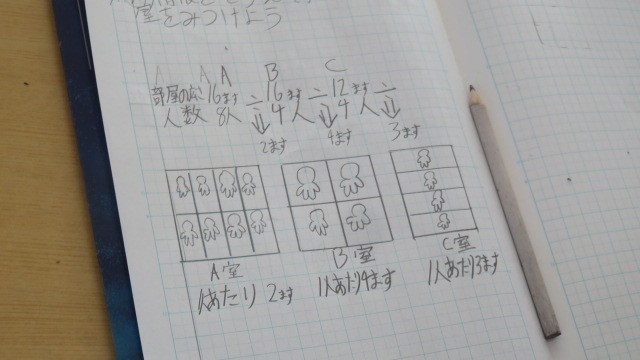 室をみつけよう
A B C
部屋の広 16ます ÷ 16ます ÷ 12ます ÷
人数 8人 4人 4人
2ます 4ます 3ます
A室 B室 C室
1人あたり 2ます 1人あたり4ます 1人あたり3ます